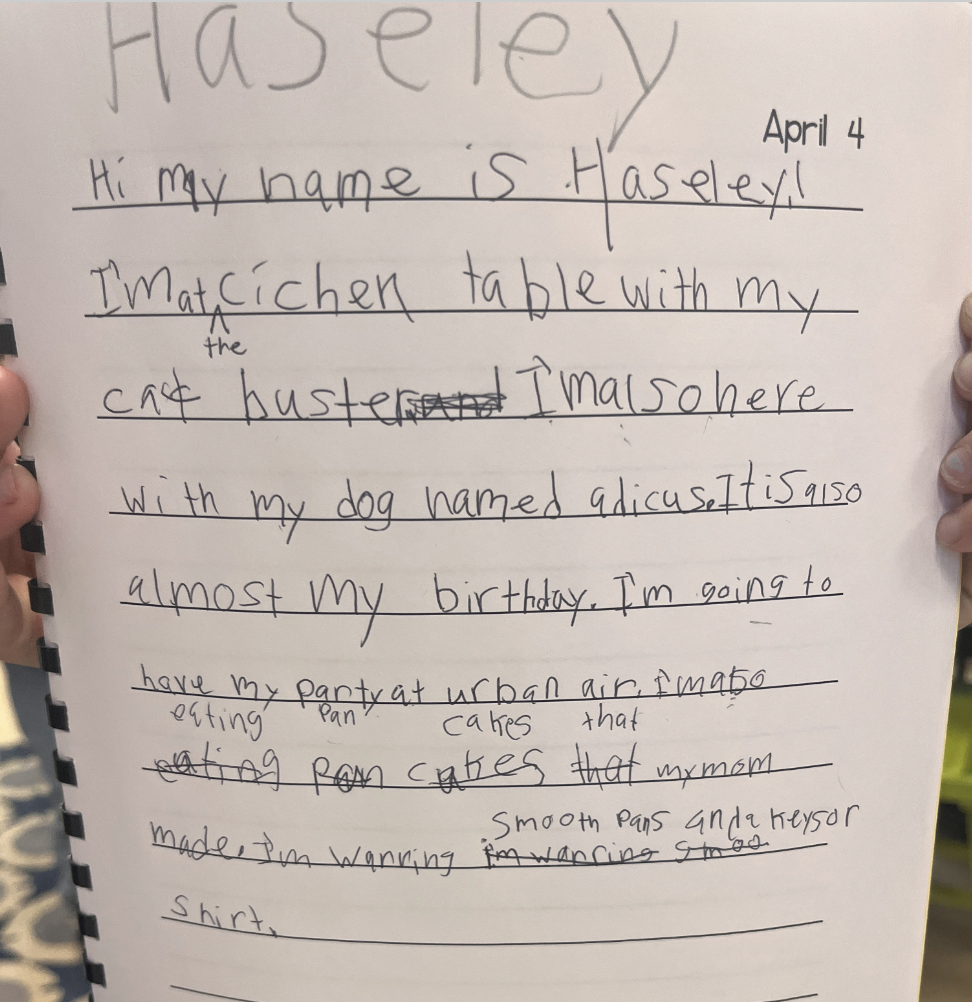 Haseley
April 4
Hi my name is Haseley!
I'm at cichen table with my
the
cat buster I'm also here
with my dog named adicus. It is also
almost my birthday. I'm going to
have my party at urban air. I'm also
eating Pan cakes that
eating pan cakes that my mom
Smooth Pans and a Keysor
made. I'm wanring im wanring smoo
Shirt.